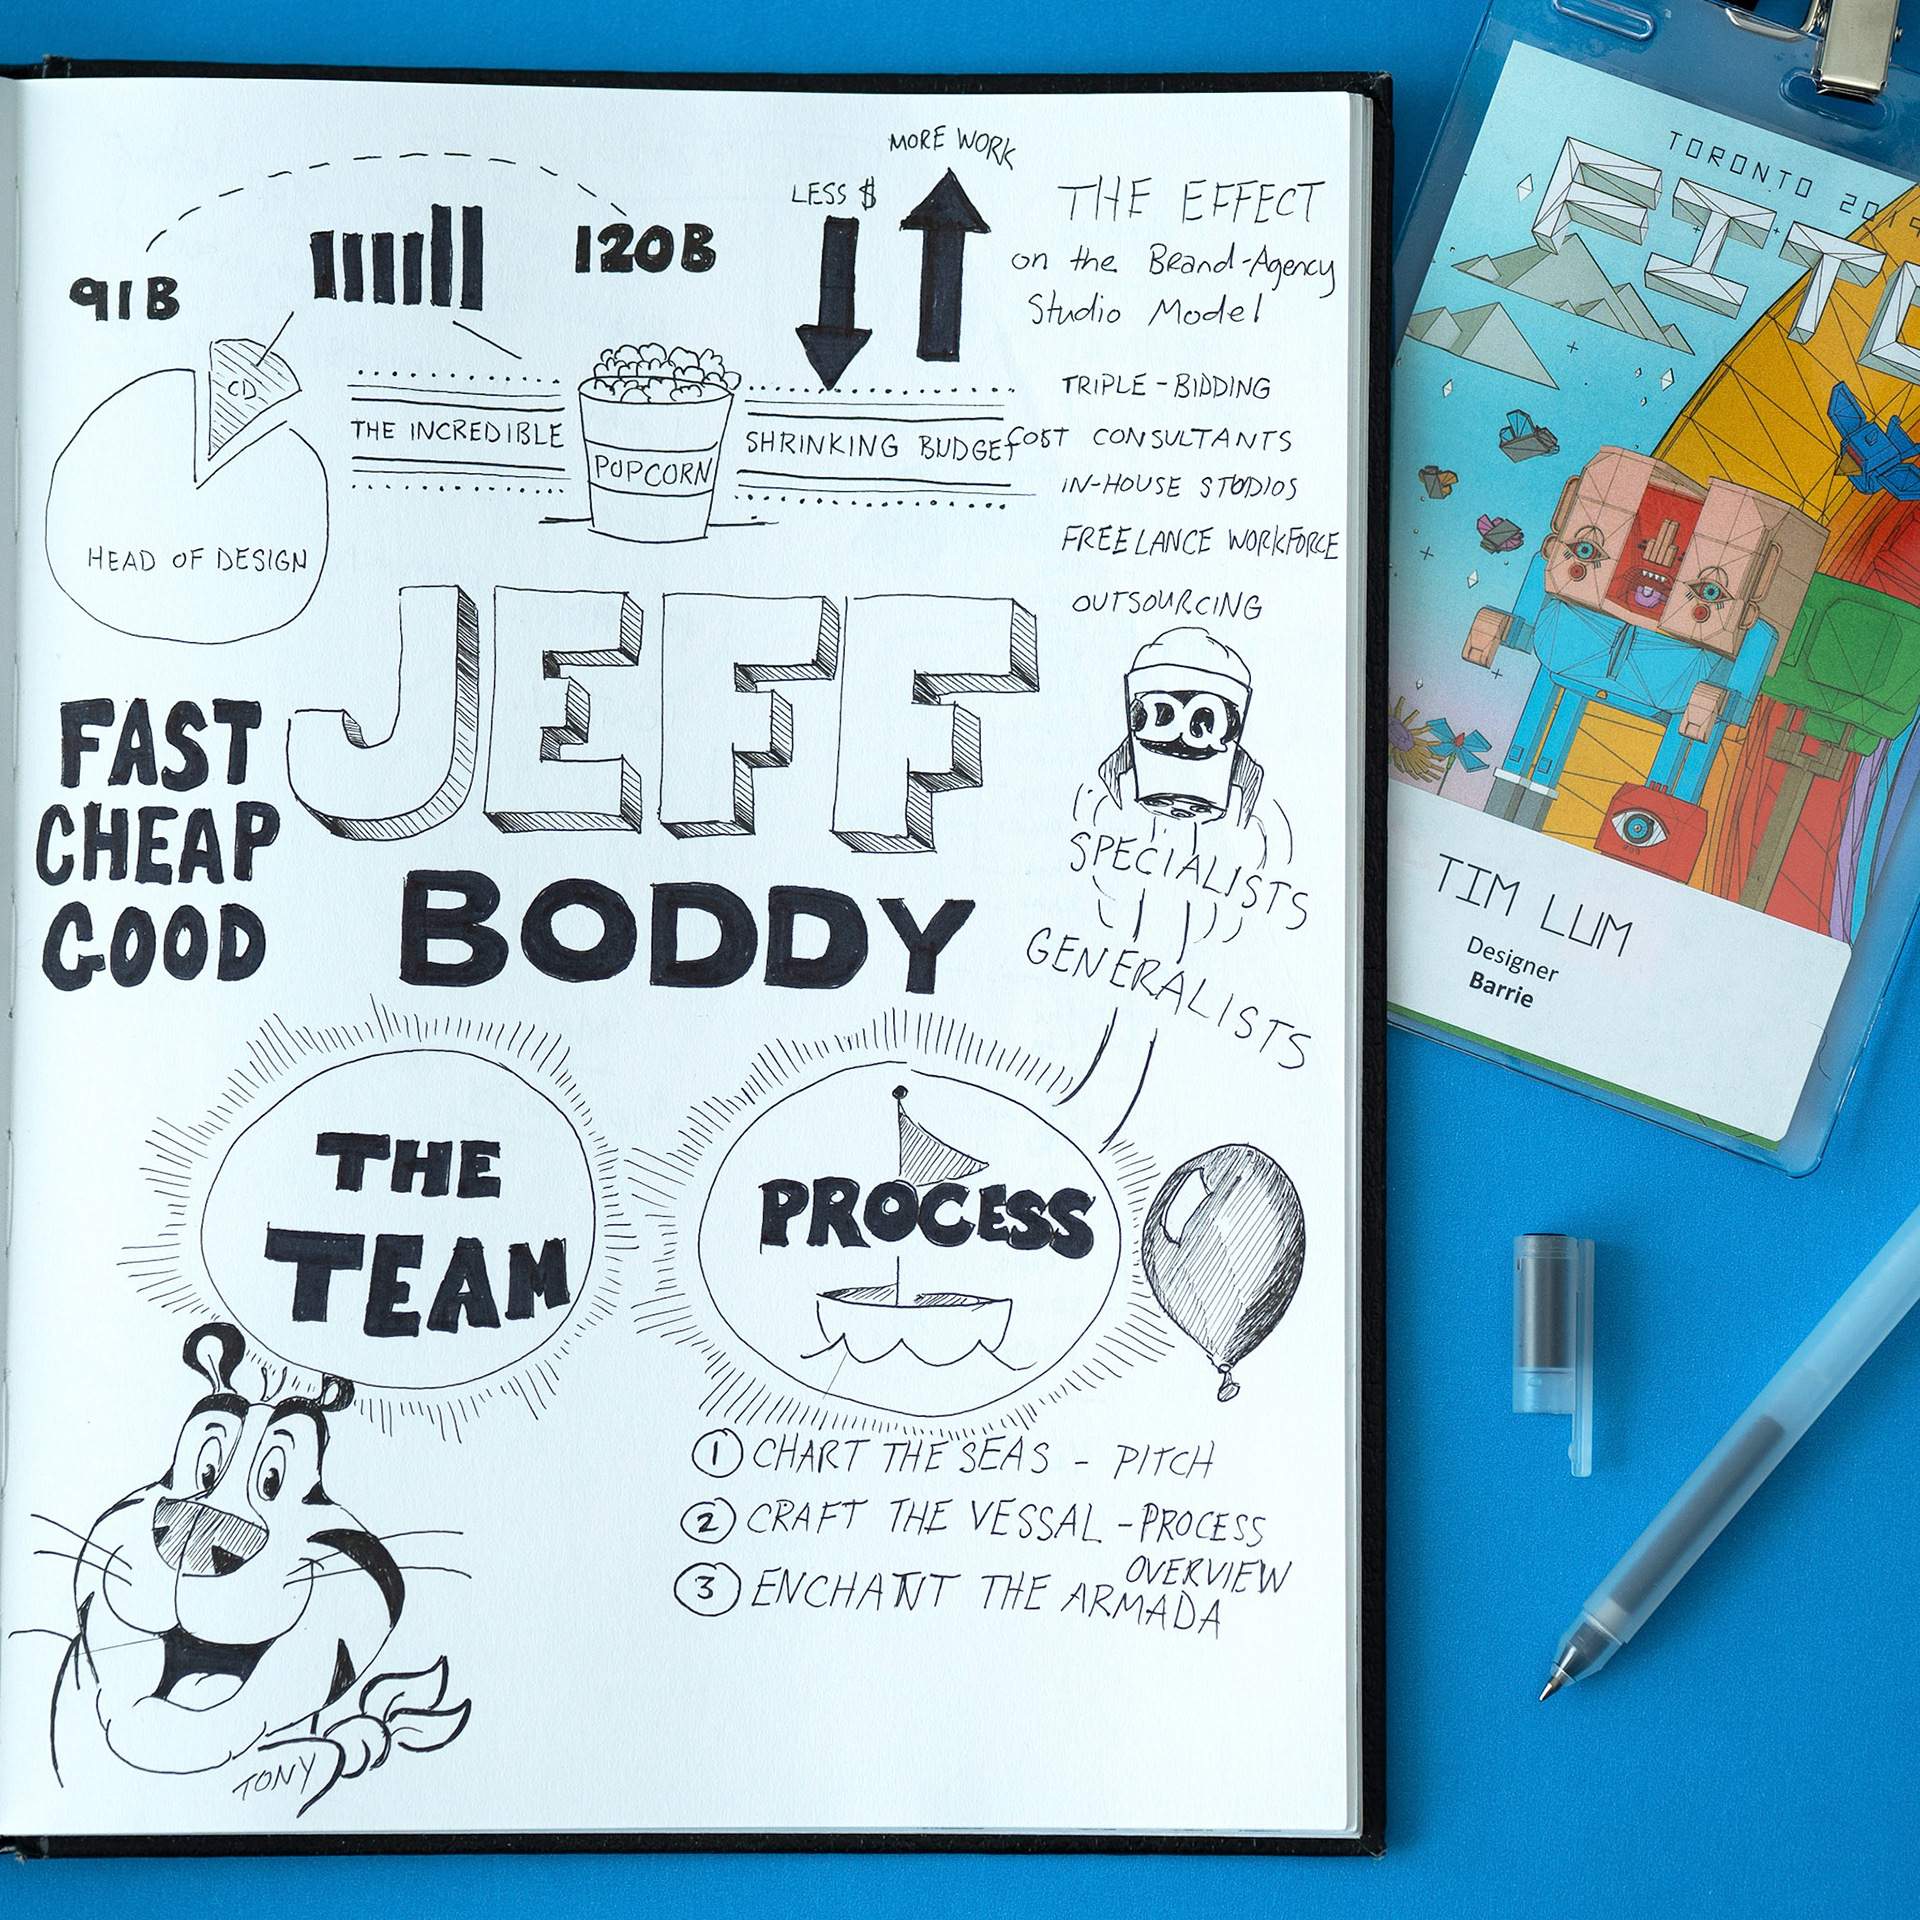 91B
120B
LESS $
MORE WORK
THE EFFECT
on the Brand-Agency
Studio Model
CD
HEAD OF DESIGN
THE INCREDIBLE
POPCORN
SHRINKING BUDGET
TRIPLE-BIDDING
COST CONSULTANTS
IN-HOUSE STUDIOS
FREELANCE WORKFORCE
OUTSOURCING
JEFF
BODDY
FAST
CHEAP
GOOD
DQ
SPECIALISTS
GENERALISTS
THE
TEAM
PROCESS
1 CHART THE SEAS - PITCH
2 CRAFT THE VESSAL - PROCESS
OVERVIEW
3 ENCHANT THE ARMADA
TONY
TORONTO 2019
FITC
TIM LUM
Designer
Barrie